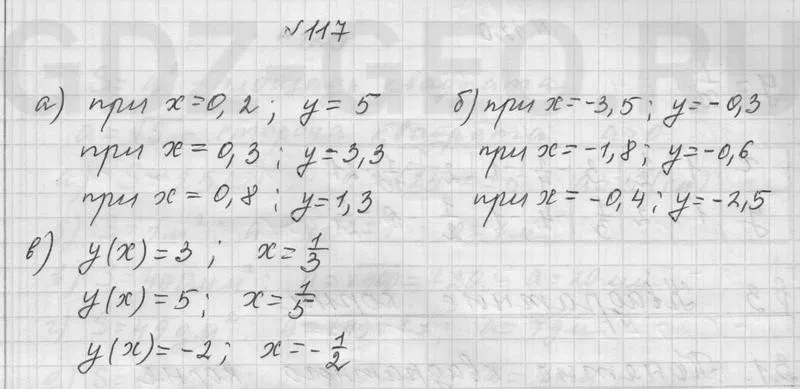 №117
а) при x=0,2; y=5
при x=0,3; y=3,3
при x=0,8; y=1,3
б) при x=-3,5; y=-0,3
при x=-1,8; y=-0,6
при x=-0,4; y=-2,5
в) y(x)=3; x=1/3
y(x)=5; x=1/5
y(x)=-2; x=-1/2
GDZ-GEO.RU